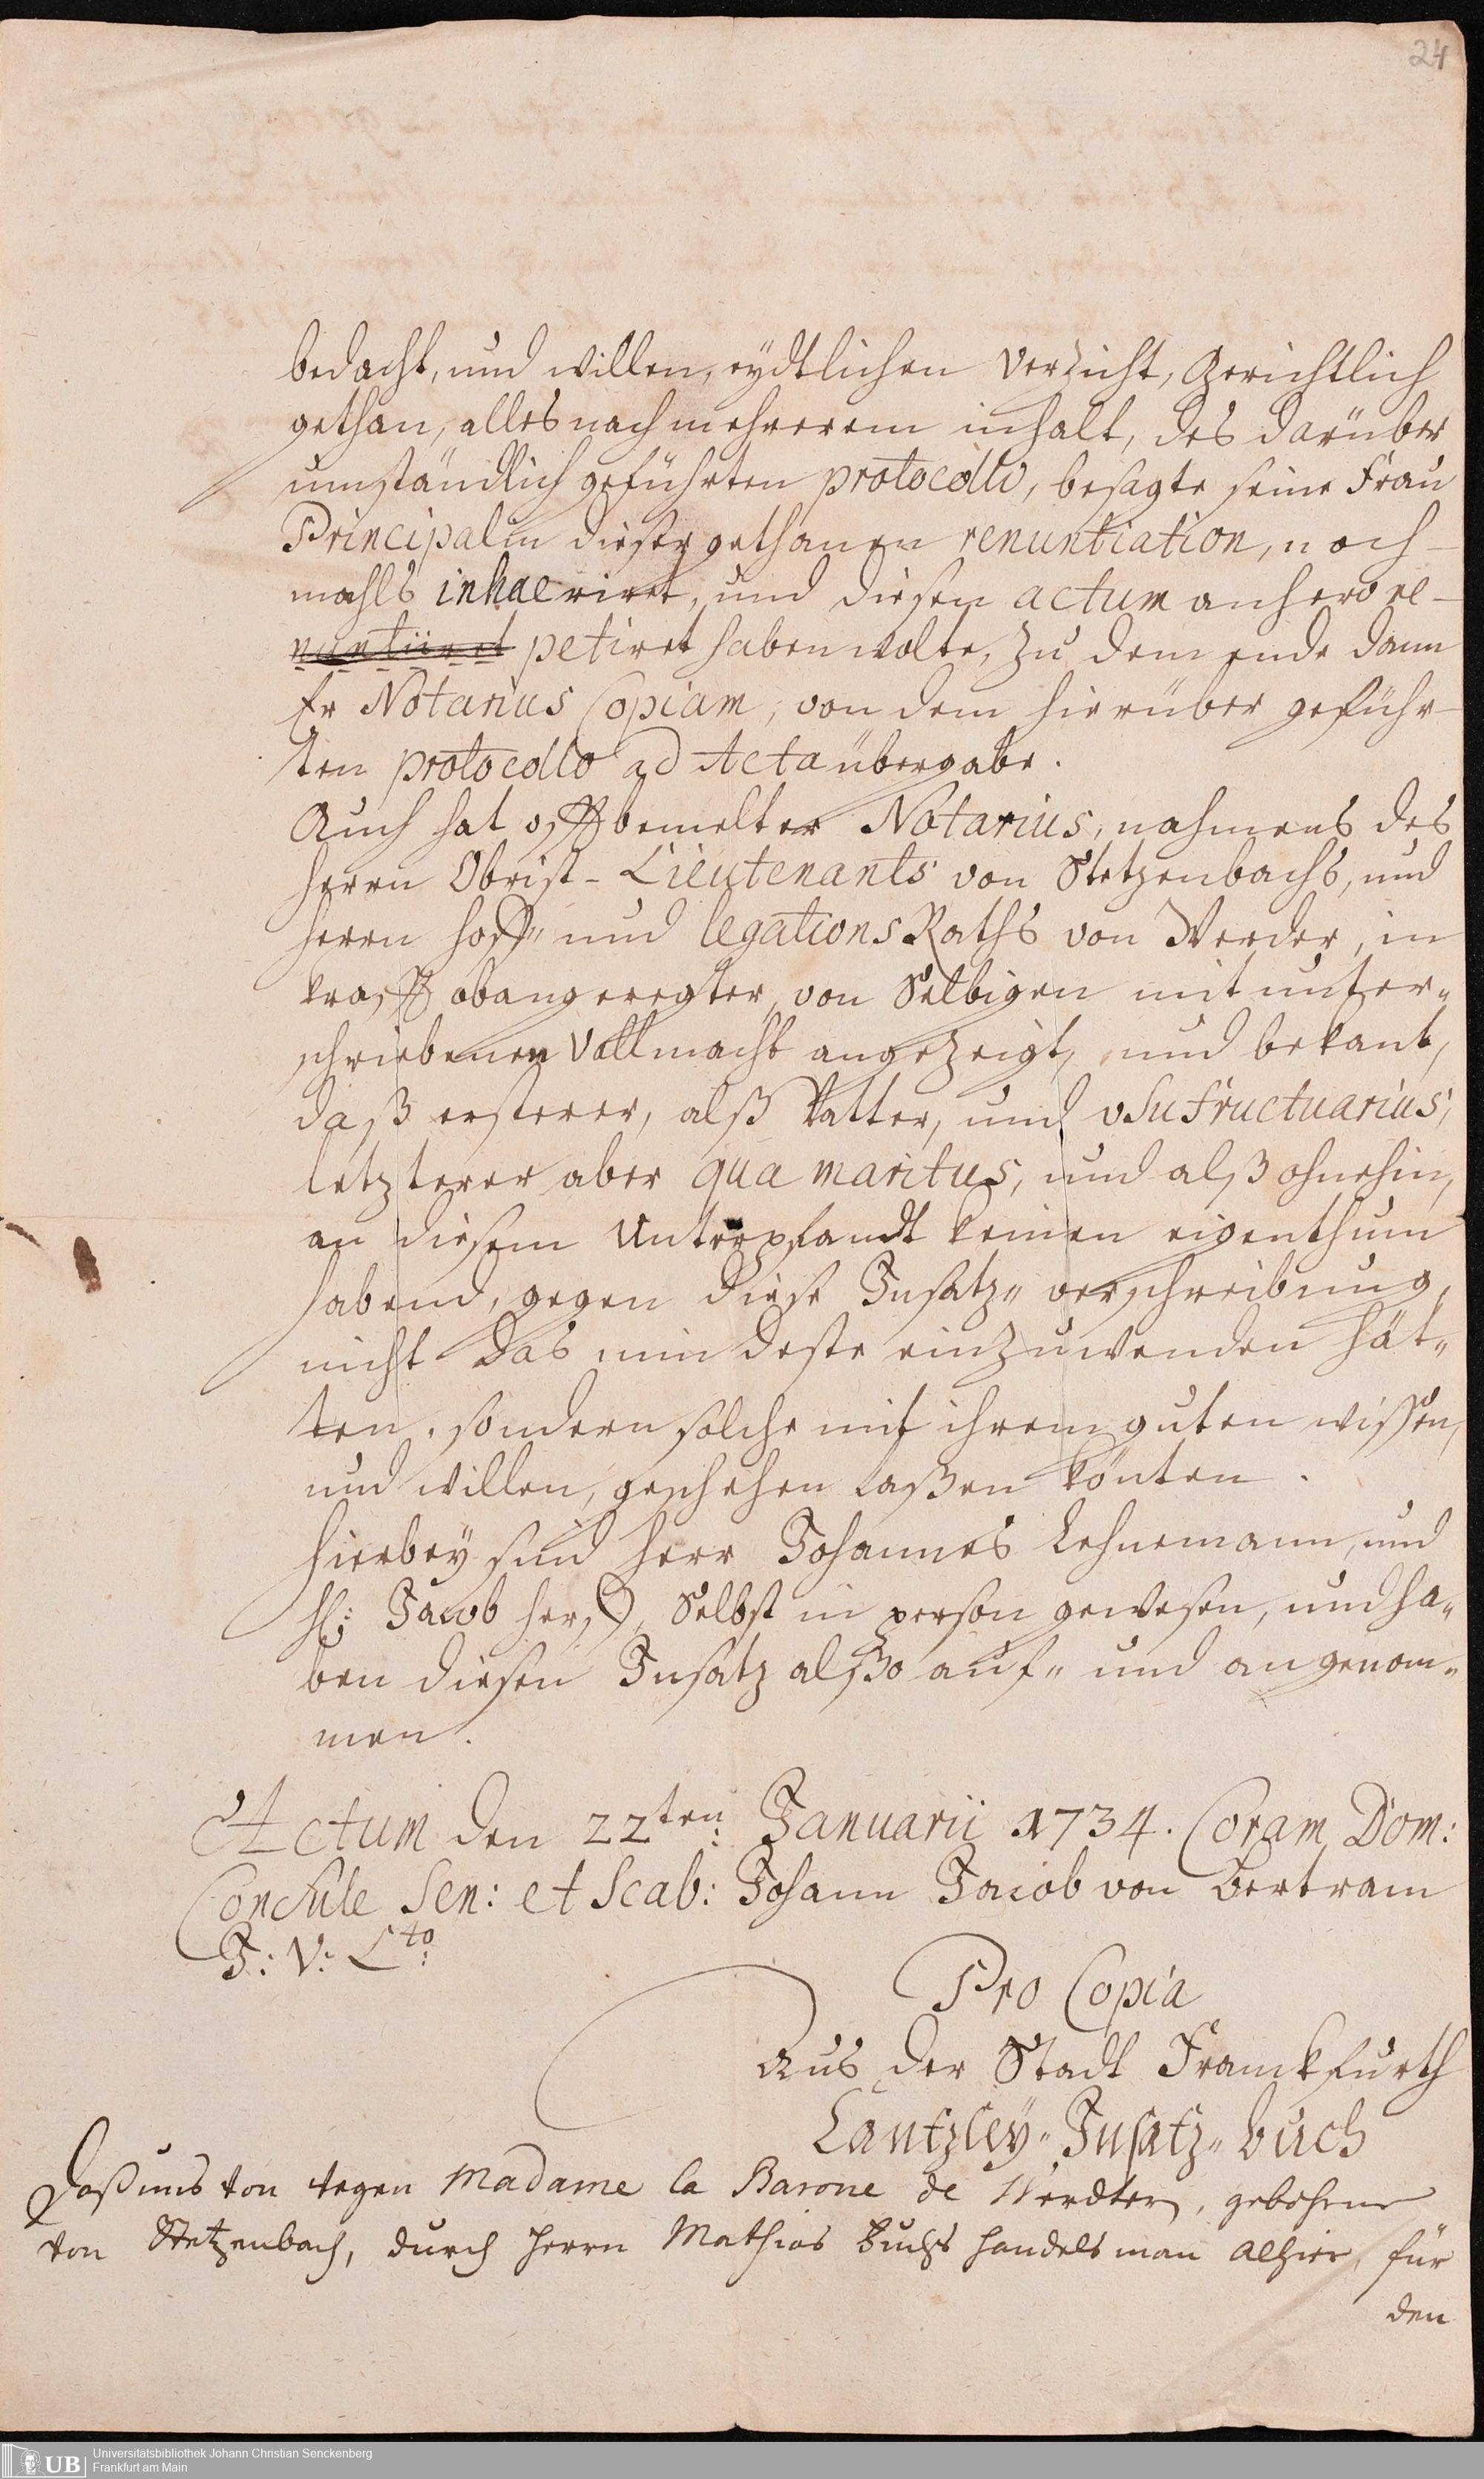 24
bedacht, und willen, eÿdtlichen Verzicht, Gerichtlich
gethan, alles nach mehrerem inhalt, des darüber
umständlich geführten protocolli, besagte seine Frau
Principalin dieser gethanen renuntiation, noch-
mahls inhaeriret, und diesen actum anhero re-
nuntiiret petiret haben wolte, zu dem ende dann
Er Notarius Copiam, von dem hierüber geführ-
ten protocollo ad Acta übergabe.
Auch hat offtbemelter Notarius, nahmens des
Herrn Obrist-Lieutenants von Stetzenbachs, und
Herrn Hoff- und legations Raths von Werder, in
krafft obangeregter, von Selbigen mit unter-
schriebenen Vollmacht angezeigt, und bekant,
daß ersterer, alß Vatter, und usufructuarius,
letzterer aber qua maritus, und alß ohnehin,
an diesem Unterpfandt keinen eigenthum
habend, gegen diese Insatz-verschreibung,
nicht das mindeste einzuwenden hät-
ten, sondern solche mit ihrem guten wissen,
und willen, geschehen laßen könten.
Hierbey sind Herr Johannes Lehnemann, und
H: Jacob, Selbst in person gewesen, und ha-
ben diesen Insatz alßo auf- und angenom-
men.
Actum den 22ten: Januarii 1734. Coram Dom:
Consule Sen: et Scab: Johann Jacob von Bertram
J: V: Lto:
Pro Copia
Aus der Stadt Franckfurth
Cantzley-Insatz-buch
Daß uns von wegen Madame la Barone de Werdter, gebohrne
von Stetzenbach, durch Herrn Mathias Buchs handelsman alhier, für
den
UB
Universitätsbibliothek Johann Christian Senckenberg
Frankfurt am Main